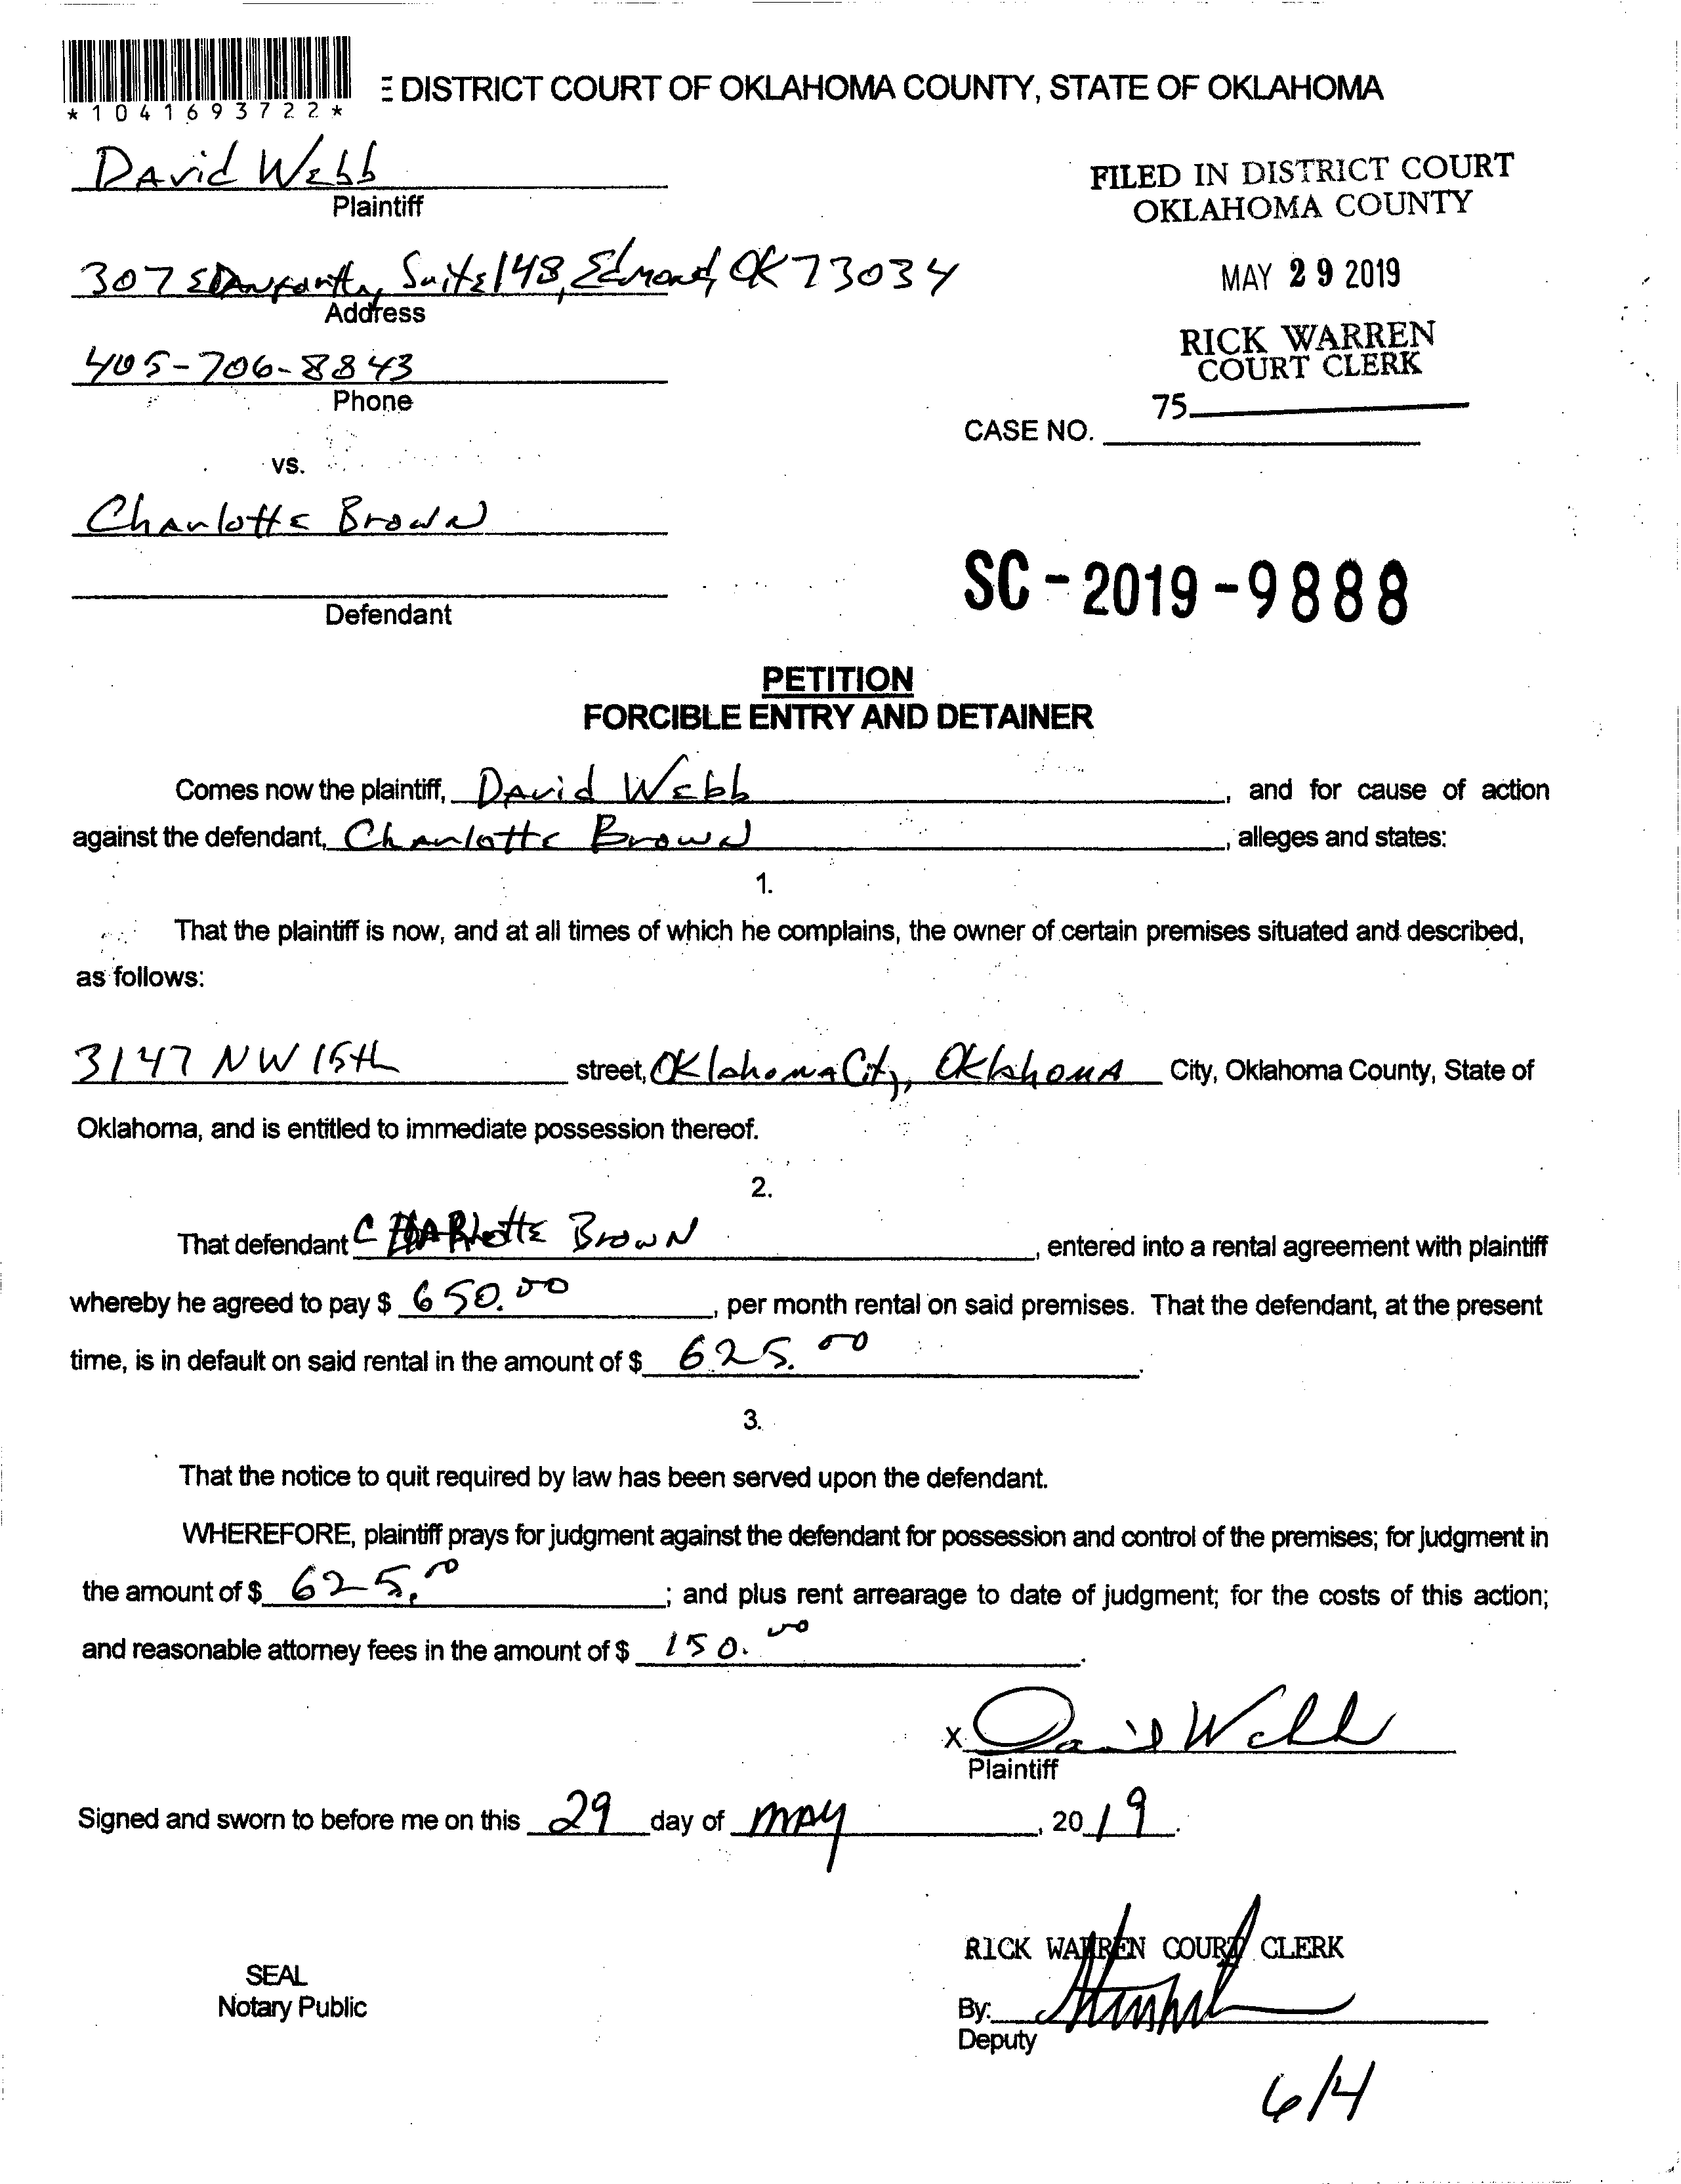 *1041693722*
DISTRICT COURT OF OKLAHOMA COUNTY, STATE OF OKLAHOMA
David Webb
Plaintiff
FILED IN DISTRICT COURT
OKLAHOMA COUNTY
307 E Danforth, Suite 148, Edmond, OK 73034
Address
MAY 29 2019
RICK WARREN
COURT CLERK
405-706-8843
Phone
75
CASE NO.
vs.
Charlotte Brown
Defendant
SC-2019-9888
PETITION
FORCIBLE ENTRY AND DETAINER
Comes now the plaintiff, David Webb, and for cause of action
against the defendant, Charlotte Brown, alleges and states:
1.
That the plaintiff is now, and at all times of which he complains, the owner of certain premises situated and described,
as follows:
3147 NW 15th street, Oklahoma City, Oklahoma City, Oklahoma County, State of
Oklahoma, and is entitled to immediate possession thereof.
2.
That defendant Charlotte Brown, entered into a rental agreement with plaintiff
whereby he agreed to pay $ 650.00, per month rental on said premises. That the defendant, at the present
time, is in default on said rental in the amount of $ 625.00.
3.
That the notice to quit required by law has been served upon the defendant.
WHEREFORE, plaintiff prays for judgment against the defendant for possession and control of the premises; for judgment in
the amount of $ 625.00; and plus rent arrearage to date of judgment; for the costs of this action;
and reasonable attorney fees in the amount of $ 150.00.
X David Webb
Plaintiff
Signed and sworn to before me on this 29 day of May, 2019.
RICK WARREN COURT CLERK
SEAL
Notary Public
By:
Deputy
6/4